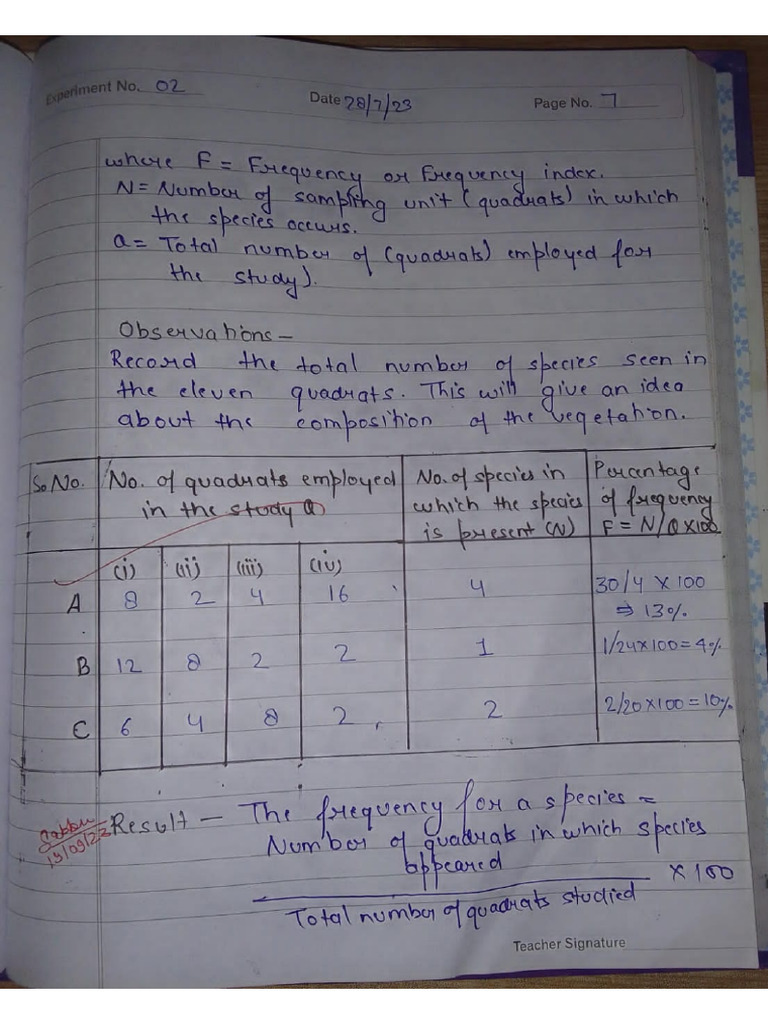 Experiment No. 02 Date 28/7/23 Page No. 7
where F = Frequency or Frequency index.
N = Number of sampling unit (quadrats) in which
the species occurs.
a = Total number of (quadrats) employed for
the study).
Observations -
Record the total number of species seen in
the eleven quadrats. This will give an idea
about the composition of the vegetation.
So No. No. of quadrats employed No. of species in Percentage
in the study Q which the species of frequency
is present (N) F = N/Q X100
(i) (ii) (iii) (iv)
A 8 2 4 16 4 30/4 X 100
⇒ 13%
B 12 8 2 2 1 1/24X100 = 4%
C 6 4 8 2 2 2/20X100 = 10%
Result - The frequency for a species =
Number of quadrats in which species
appeared
X 100
Total number of quadrats studied
13/09/23
Teacher Signature